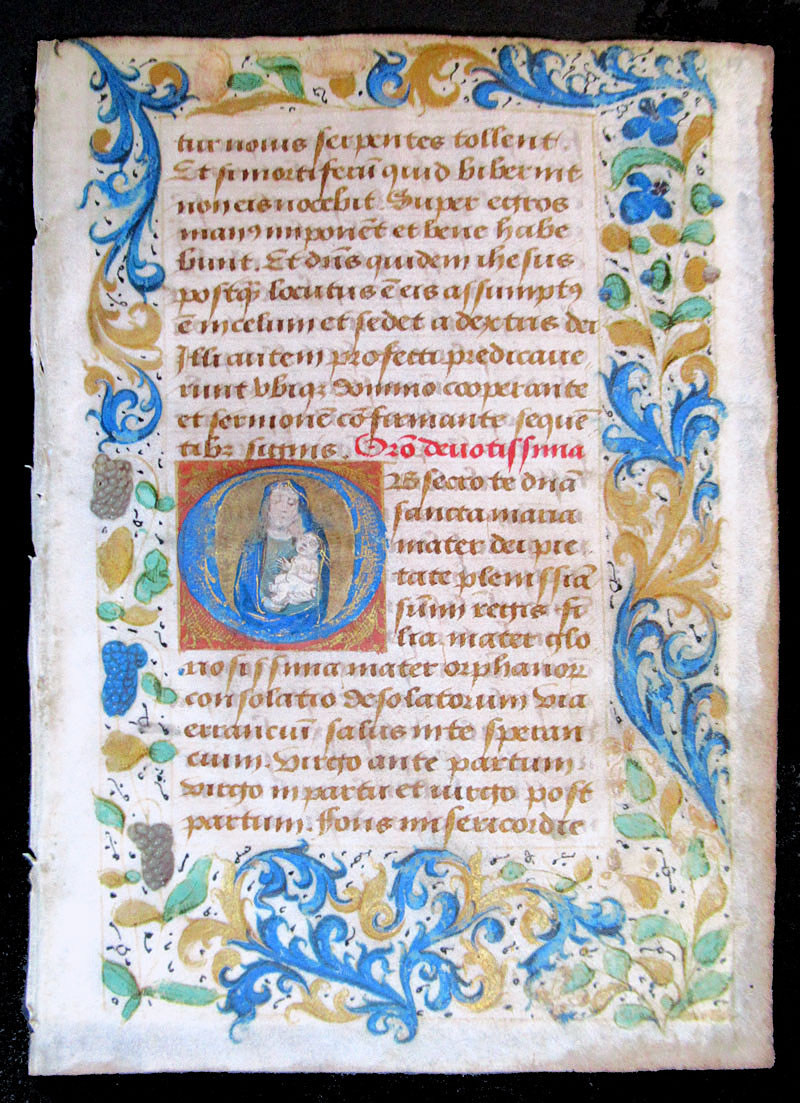 tur nouis serpentes tollent.
Et si mortiferũ quid biberint
non eis nocebit. Super egros
manꝯ imponẽt et bene habe
bunt. Et dñs quidem ihesus
postq̃ locutus ẽ eis assumptꝯ
ẽ in celum et sedet a dextris dei
Illi autem profecti predicaue
runt vbiqꝫ domino cooperante
et sermonẽ cõfirmante sequẽ
tibꝫ signis. Orõ deuotissima
OBsecro te dñã
sancta maria
mater dei pie
tate plenissiã
sũmi regis fi
lia mater glo
riosissima mater orphanoꝝ
consolatio desolatorum via
errancium salus in te speran
cium. Virgo ante partum
virgo in partu et uirgo post
partum. Fons misericordie